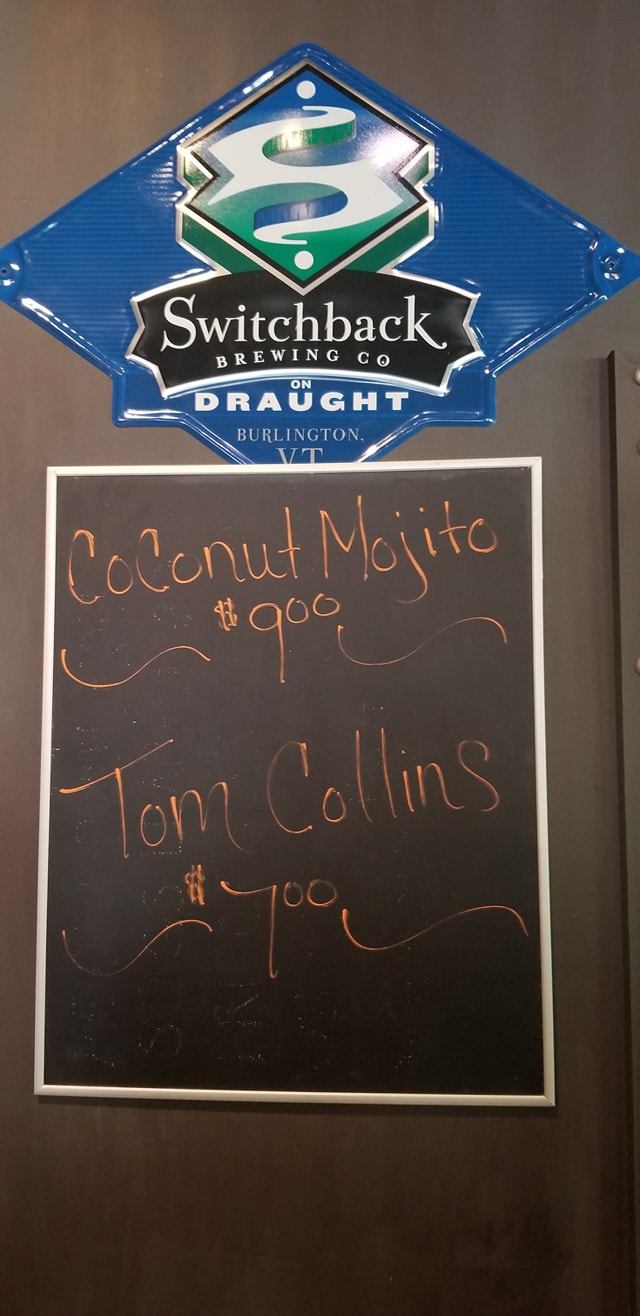 Switchback
BREWING CO
ON
DRAUGHT
BURLINGTON,
VT
Coconut Mojito
$900
Tom Collins
$700